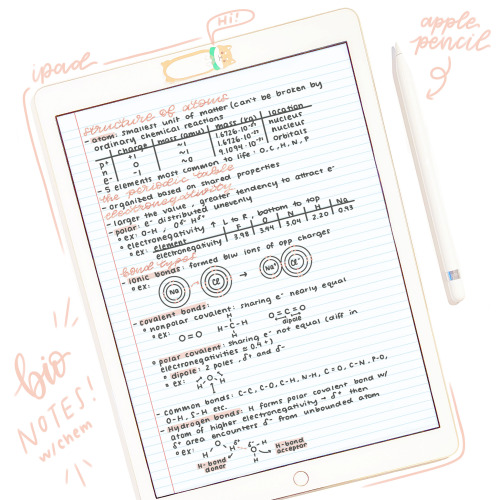 Hi!
ipad
apple
pencil
structure of atoms
- atom: smallest unit of matter (can't be broken by
ordinary chemical reactions
charge mass (amu) mass (kg) location
p+ +1 ~1 1.6726·10⁻²⁷ nucleus
n 0 ~1 1.6726·10⁻²⁷ nucleus
e- -1 ~0 9.1094·10⁻³¹ orbitals
- 5 elements most common to life: O, C, H, N, P
the periodic table
- organized based on shared properties
electronegativity
- larger the value, greater tendency to attract e-
- polar: e- distributed unevenly
° ex: O-H, Oδ- Hδ+
° electronegativity ↑ L to R, bottom to top
° ex: element O N H Na
electronegativity 3.98 3.44 3.04 2.20 0.93
bond types
- ionic bonds: formed b/w ions of opp charges
° ex: Na Cl → Na+ Cl-
- covalent bonds:
° nonpolar covalent: sharing e- nearly equal
° ex: O=O
H
H-C-H
H
O=C=O
dipole
° polar covalent: sharing e- not equal (diff in
electronegativities ≈ 0.4+)
° dipole: 2 poles, δ+ and δ-
° ex: O
H H
- common bonds: C-C, C-O, C-H, N-H, C=O, C-N, P-O,
O-H, S-H etc.
- Hydrogen bonds: H forms polar covalent bond w/
atom of higher electronegativity → δ+ then
δ+ area encounters δ- from unbounded atom
° ex: O
H H δ+ δ- O-H
H
H-bond
donor
H-bond
acceptor
bio
NOTES!
w/chem